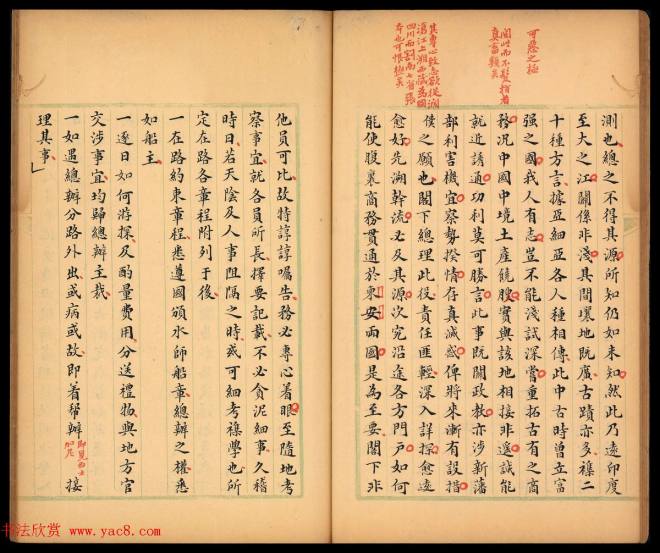 可惡之極
閱此而不髮指者
真畜類矣
測也總之不得其源所知仍如未知然此乃遠印度
至大之江關係非淺其間壤地既廣古蹟亦多襍二
十種方言據亞細亞各人種相傳此中古時曾立富
強之國我人有志豈不能淺試深嘗重拓古有之商
務况中國中境土產饒腴實與該地相接非遙誠能
就近誘通功利莫可勝言此事既關政教亦涉新藩
部利害機宜察勢揆情存真滅惑俾將來漸有設措
侯之願也閣下總理此役責任匪輕深入詳探愈遠
愈好先溯幹流必及其源次究沿途各方門戶如何
能使腹裏商務貫通於東安兩國是為至要閣下非
他員可比故特諄諄囑告務必專心着眼至隨地考
察事宜就各員所長擇要記載不必貪泥細事久稽
時日若天陰及人事阻隔之時或可細考襍學也所
定在路各章程附列于後
一在路約束章程悉遵國頒水師船章總辦之權悉
如船主
一逐日如何游探及酌量費用分送禮物與地方官
交涉事宜均歸總辦主裁
一如遇總辦分路外出或病或故即着幫辦接
理其事
书法欣赏 www.yac8.com